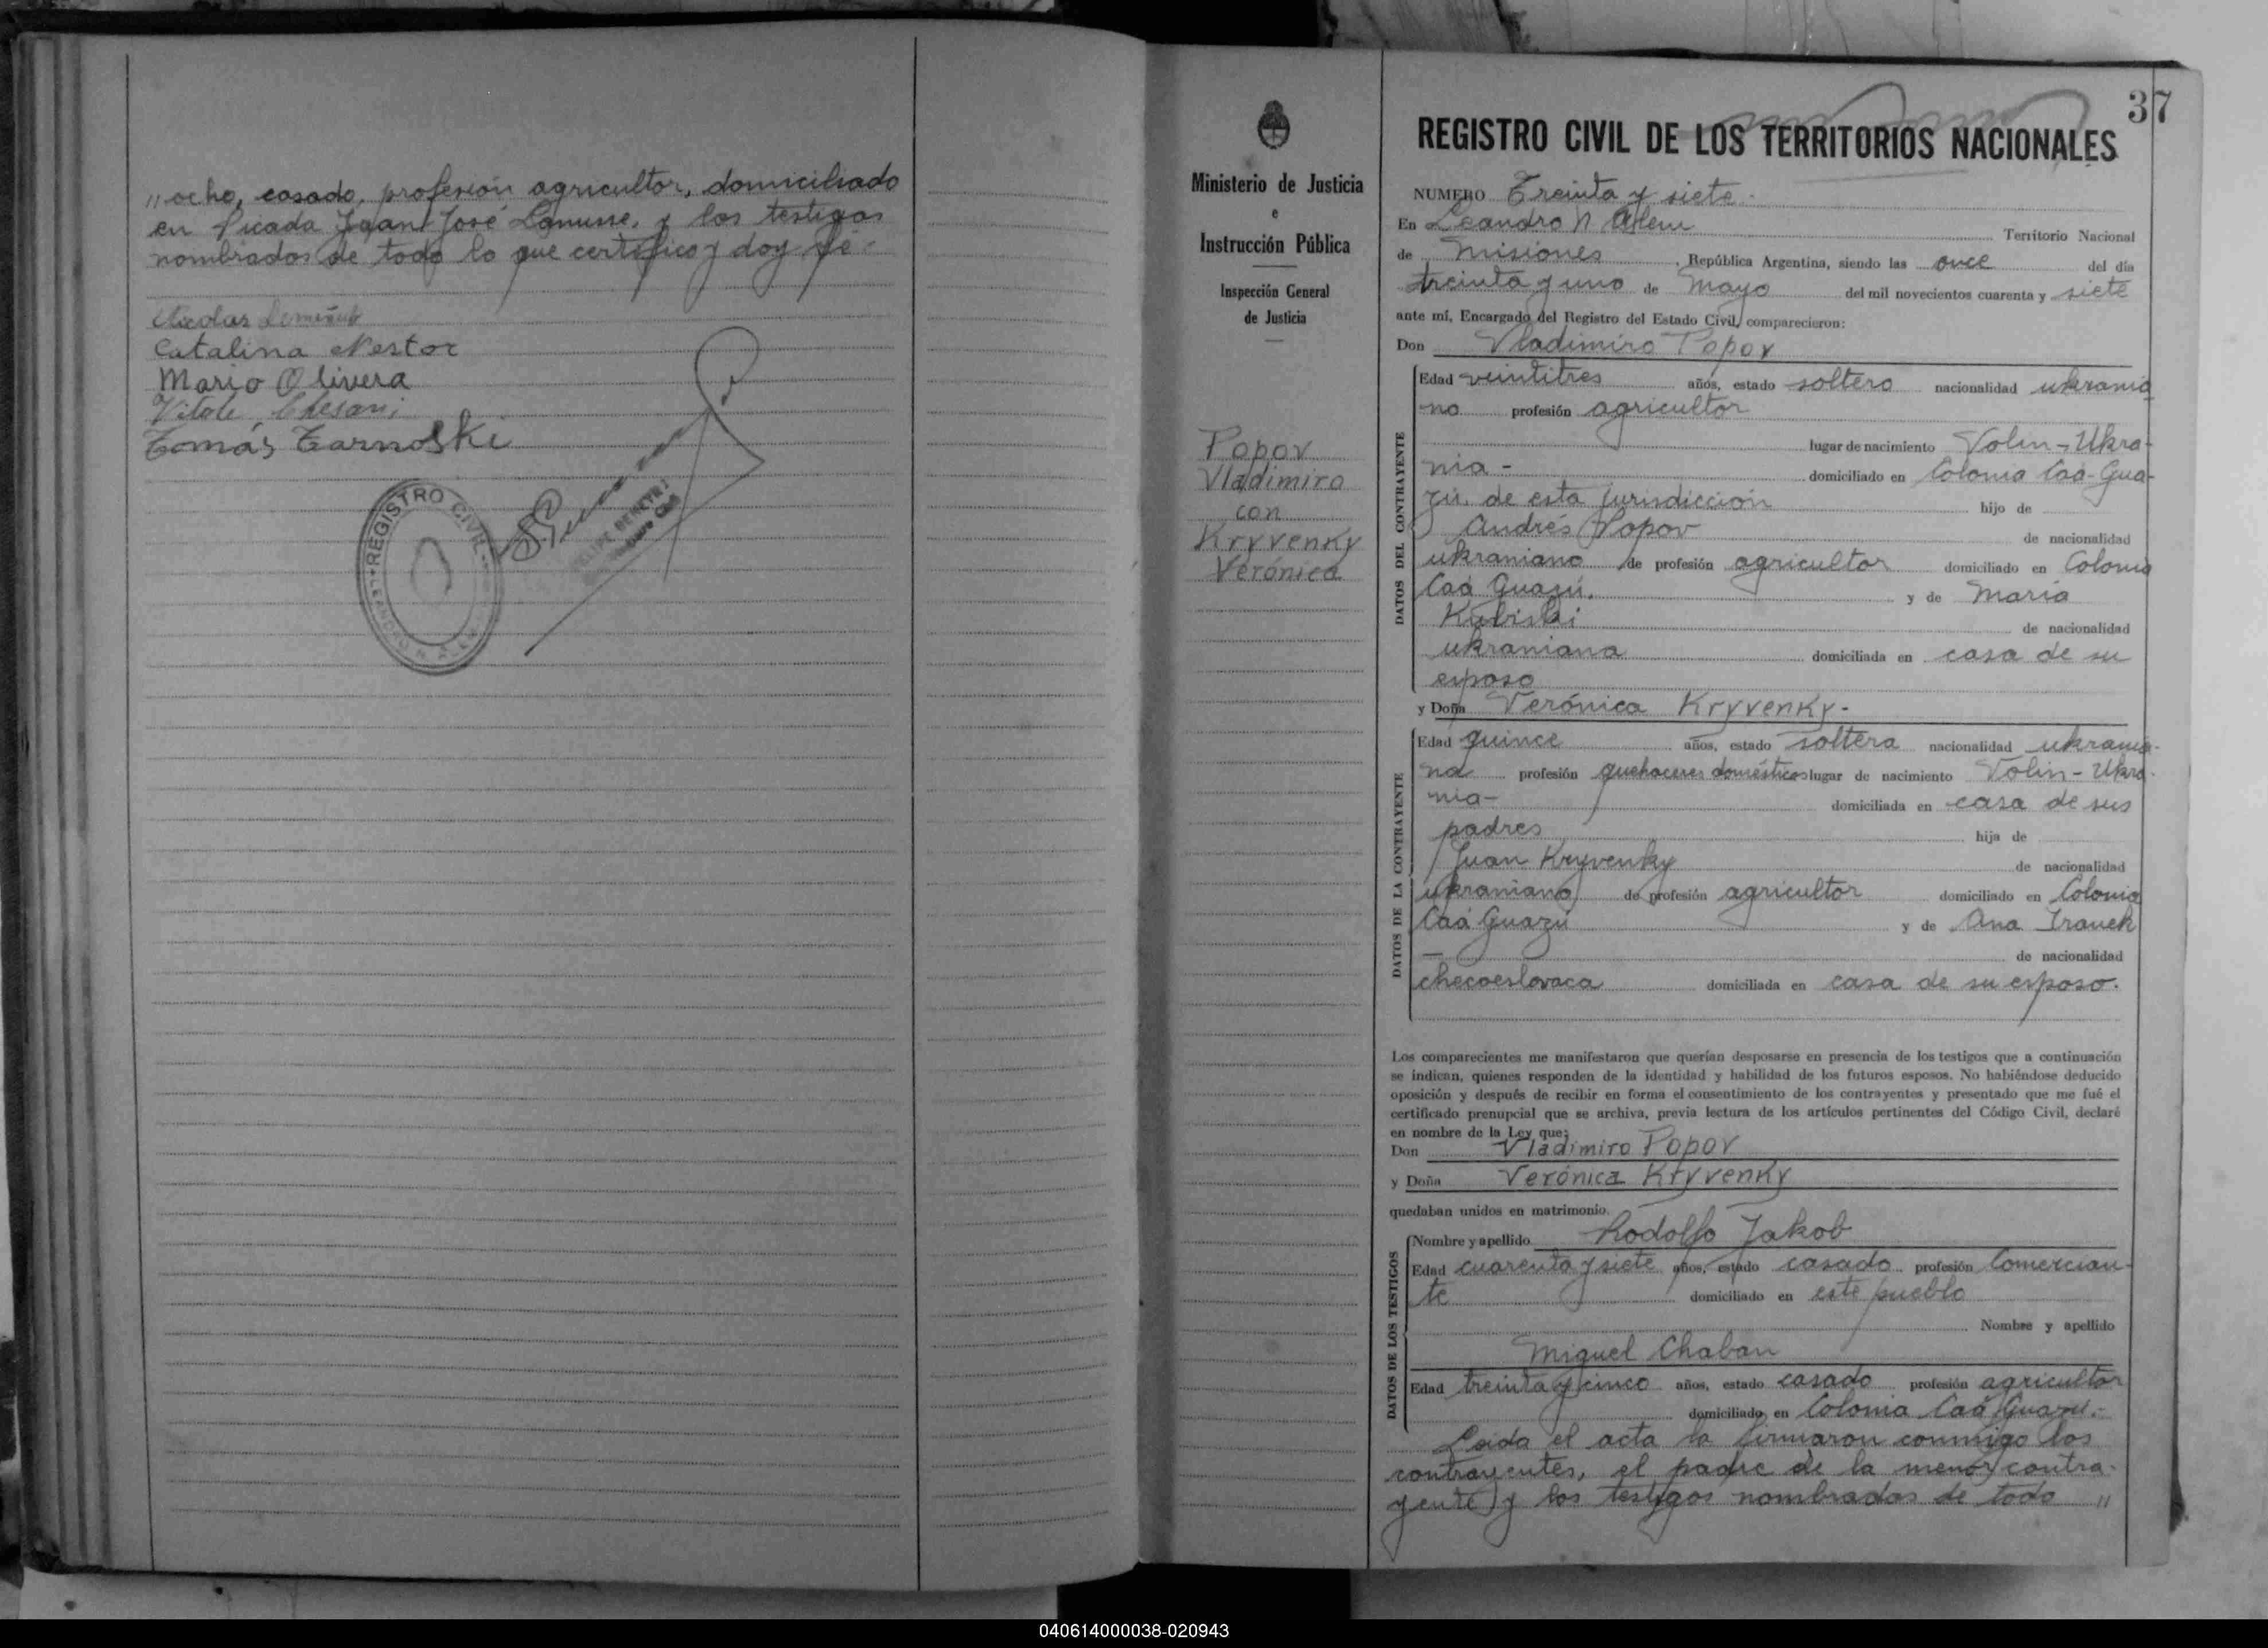 „ ocho, casado, profesión agricultor, domiciliado
en Picada Juan José Lanusse, y los testigos
nombrados de todo lo que certifico y doy fé-
Nicolas
Catalina Nestor
Mario Olivera
Vitale
Tomás Tarnoski
REGISTRO CIVIL
LEANDRO N. ALEM
Ministerio de Justicia
e
Instrucción Pública
Inspección General
de Justicia
Popov
Vladimiro
con
Kryvenky
Verónica
37
REGISTRO CIVIL DE LOS TERRITORIOS NACIONALES
NUMERO Treinta y siete-
En Leandro N Alem Territorio Nacional
de Misiones, República Argentina, siendo las once del día
treinta y uno de Mayo del mil novecientos cuarenta y siete
ante mí, Encargado del Registro del Estado Civil, comparecieron:
Don Vladimiro Popov
DATOS DEL CONTRAYENTE
Edad veintitres años, estado soltero nacionalidad ukrania
no profesión agricultor
lugar de nacimiento Volin-Ukra-
nia- domiciliado en Colonia Caá-Gua-
zú. de esta jurisdicción hijo de
Andrés Popov de nacionalidad
ukraniano de profesión agricultor domiciliado en Colonia
Caá Guazú. y de María
Kubiski de nacionalidad
ukraniana domiciliada en casa de su
esposo
y Doña Verónica Kryvenky-
DATOS DE LA CONTRAYENTE
Edad quince años, estado soltera nacionalidad ukrania-
na profesión quehaceres domésticos lugar de nacimiento Volin-Ukra-
nia- domiciliada en casa de sus
padres hija de
Juan Kryvenky de nacionalidad
ukraniano de profesión agricultor domiciliado en Colonia
Caá Guazú y de Ana
— de nacionalidad
checoeslovaca domiciliada en casa de su esposo.
Los comparecientes me manifestaron que querían desposarse en presencia de los testigos que a continuación
se indican, quienes responden de la identidad y habilidad de los futuros esposos. No habiéndose deducido
oposición y después de recibir en forma el consentimiento de los contrayentes y presentado que me fué el
certificado prenupcial que se archiva, previa lectura de los artículos pertinentes del Código Civil, declaré
en nombre de la Ley que:
Don Vladimiro Popov
y Doña Verónica Kryvenky
quedaban unidos en matrimonio.
DATOS DE LOS TESTIGOS
Nombre y apellido Rodolfo Jakob
Edad cuarenta y siete años, estado casado profesión Comercian-
te domiciliado en este pueblo
Nombre y apellido
Miguel Chaban
Edad treinta y cinco años, estado casado profesión agricultor
domiciliado en Colonia Caá Guazú.-
Leida el acta la firmaron conmigo los
contrayentes, el padre de la menor contra-
yente y los testigos nombrados de todo „
040614000038-020943